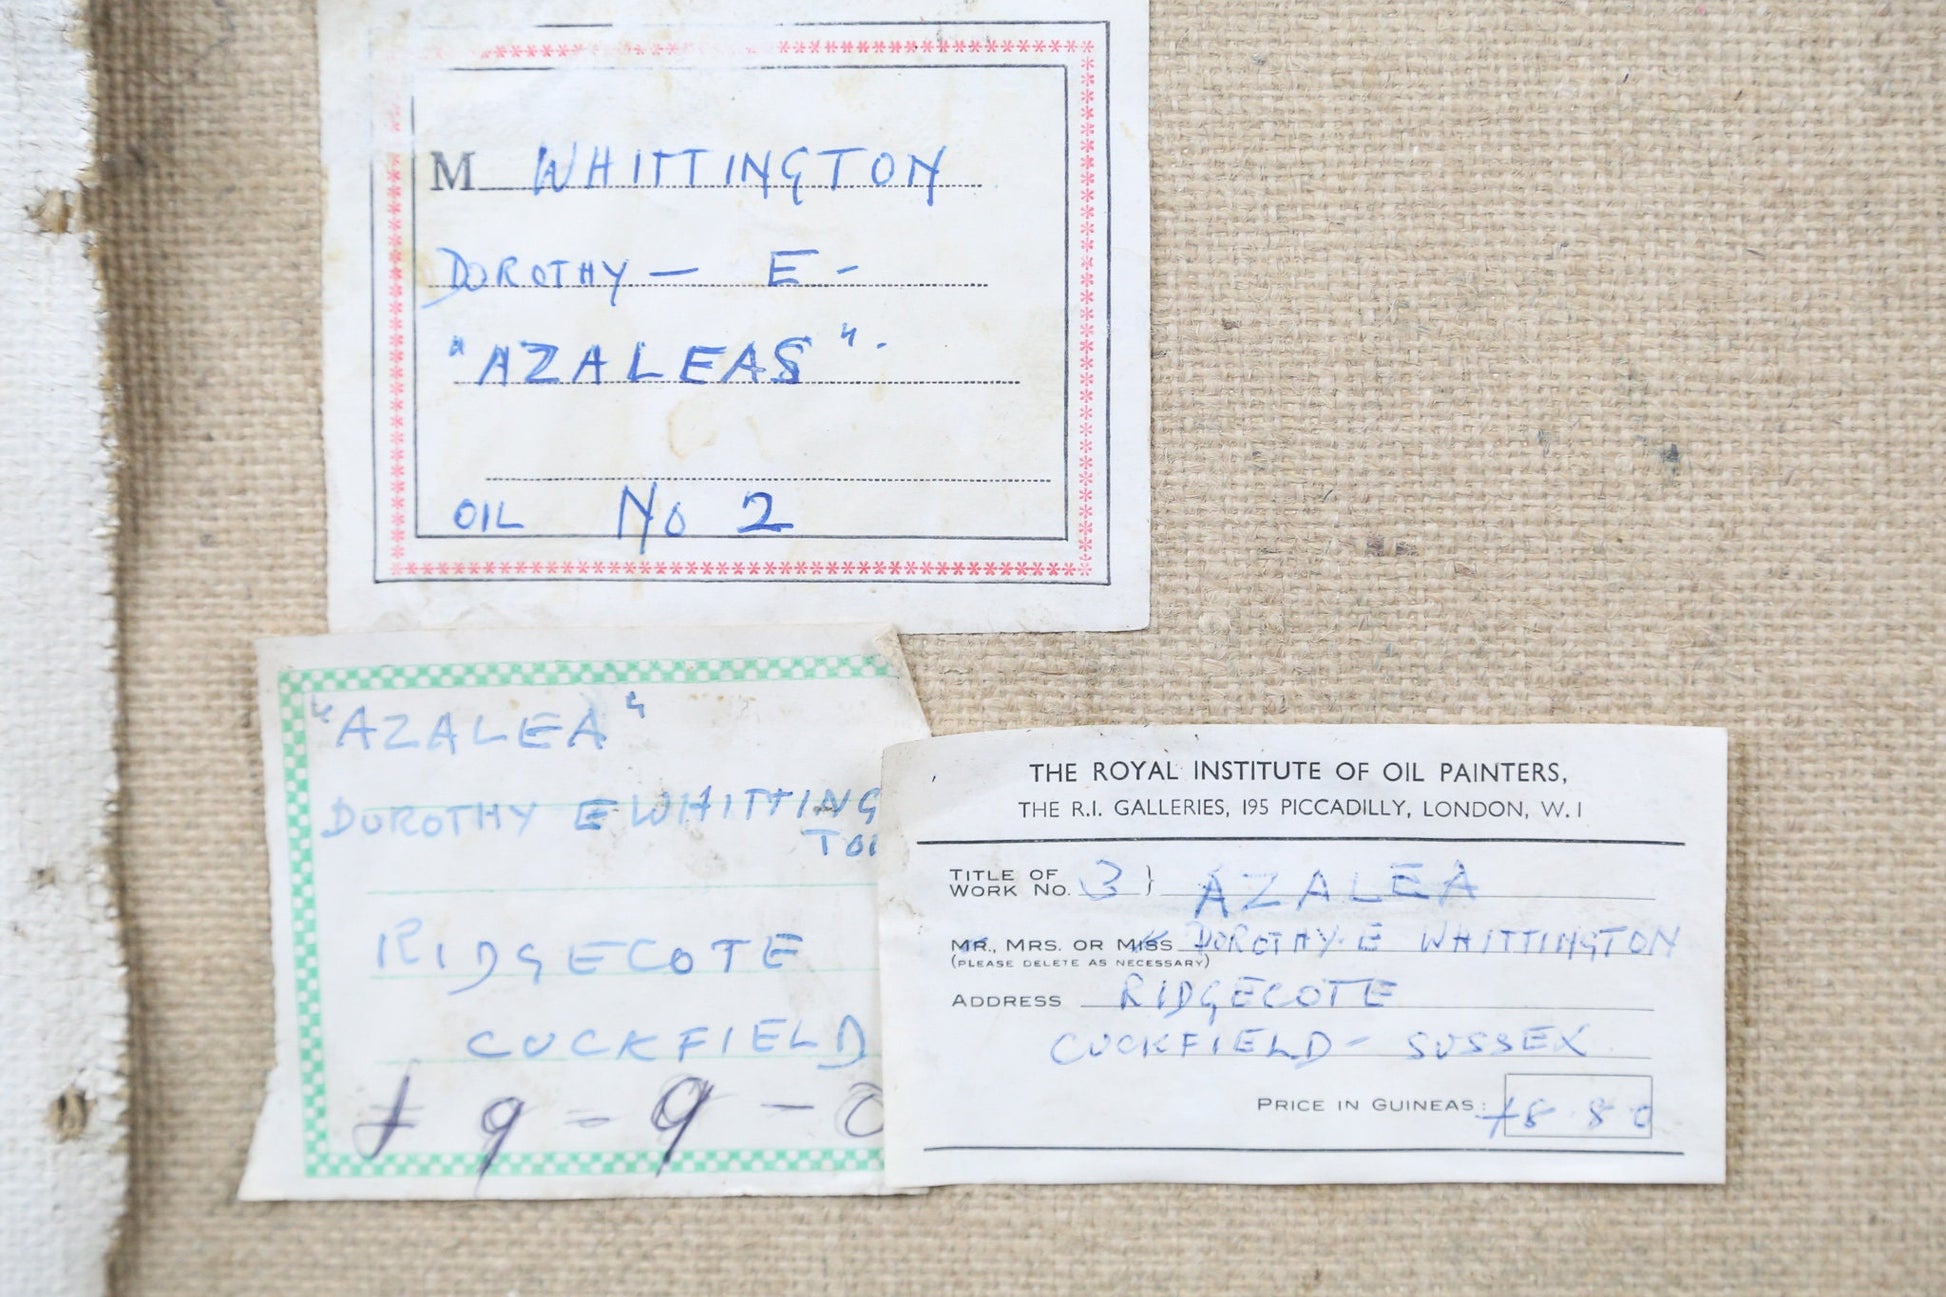 M WHITTINGTON
DOROTHY — E -
"AZALEAS".
OIL No 2
"AZALEA"
DOROTHY E WHITTING
TON
RIDGECOTE
CUCKFIELD
£ 9 - 9 - 0
THE ROYAL INSTITUTE OF OIL PAINTERS,
THE R.I. GALLERIES, 195 PICCADILLY, LONDON, W.1
TITLE OF
WORK NO. 3 } AZALEA
MR., MRS. OR MISS DOROTHY. E WHITTINGTON
(PLEASE DELETE AS NECESSARY)
ADDRESS RIDGECOTE
CUCKFIELD - SUSSEX
PRICE IN GUINEAS: £8 8 0